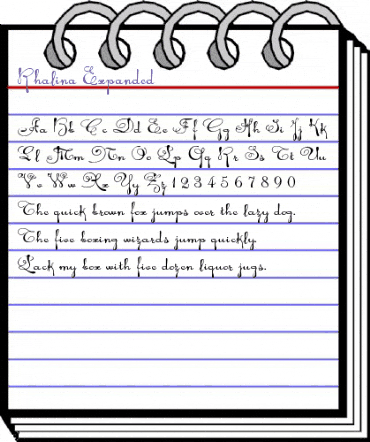 Rhalina Expanded
Aa Bb Cc Dd Ee Ff Gg Hh Ii Jj Kk
Ll Mm Nn Oo Pp Qq Rr Ss Tt Uu
Vv Ww Xx Yy Zz 1 2 3 4 5 6 7 8 9 0
The quick brown fox jumps over the lazy dog.
The five boxing wizards jump quickly.
Pack my box with five dozen liquor jugs.